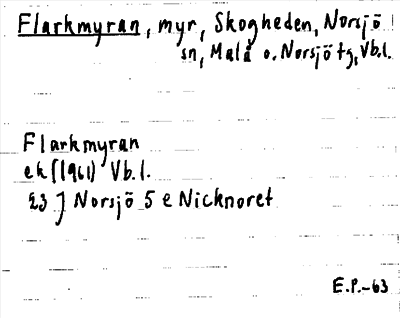 Flarkmyran, myr, Skogheden, Norsjö
sn, Malå o. Norsjö tg, Vb.l.
Flarkmyran
ek (1961) Vb.l.
23 J Norsjö 5 e Nicknoret
E.P.-63